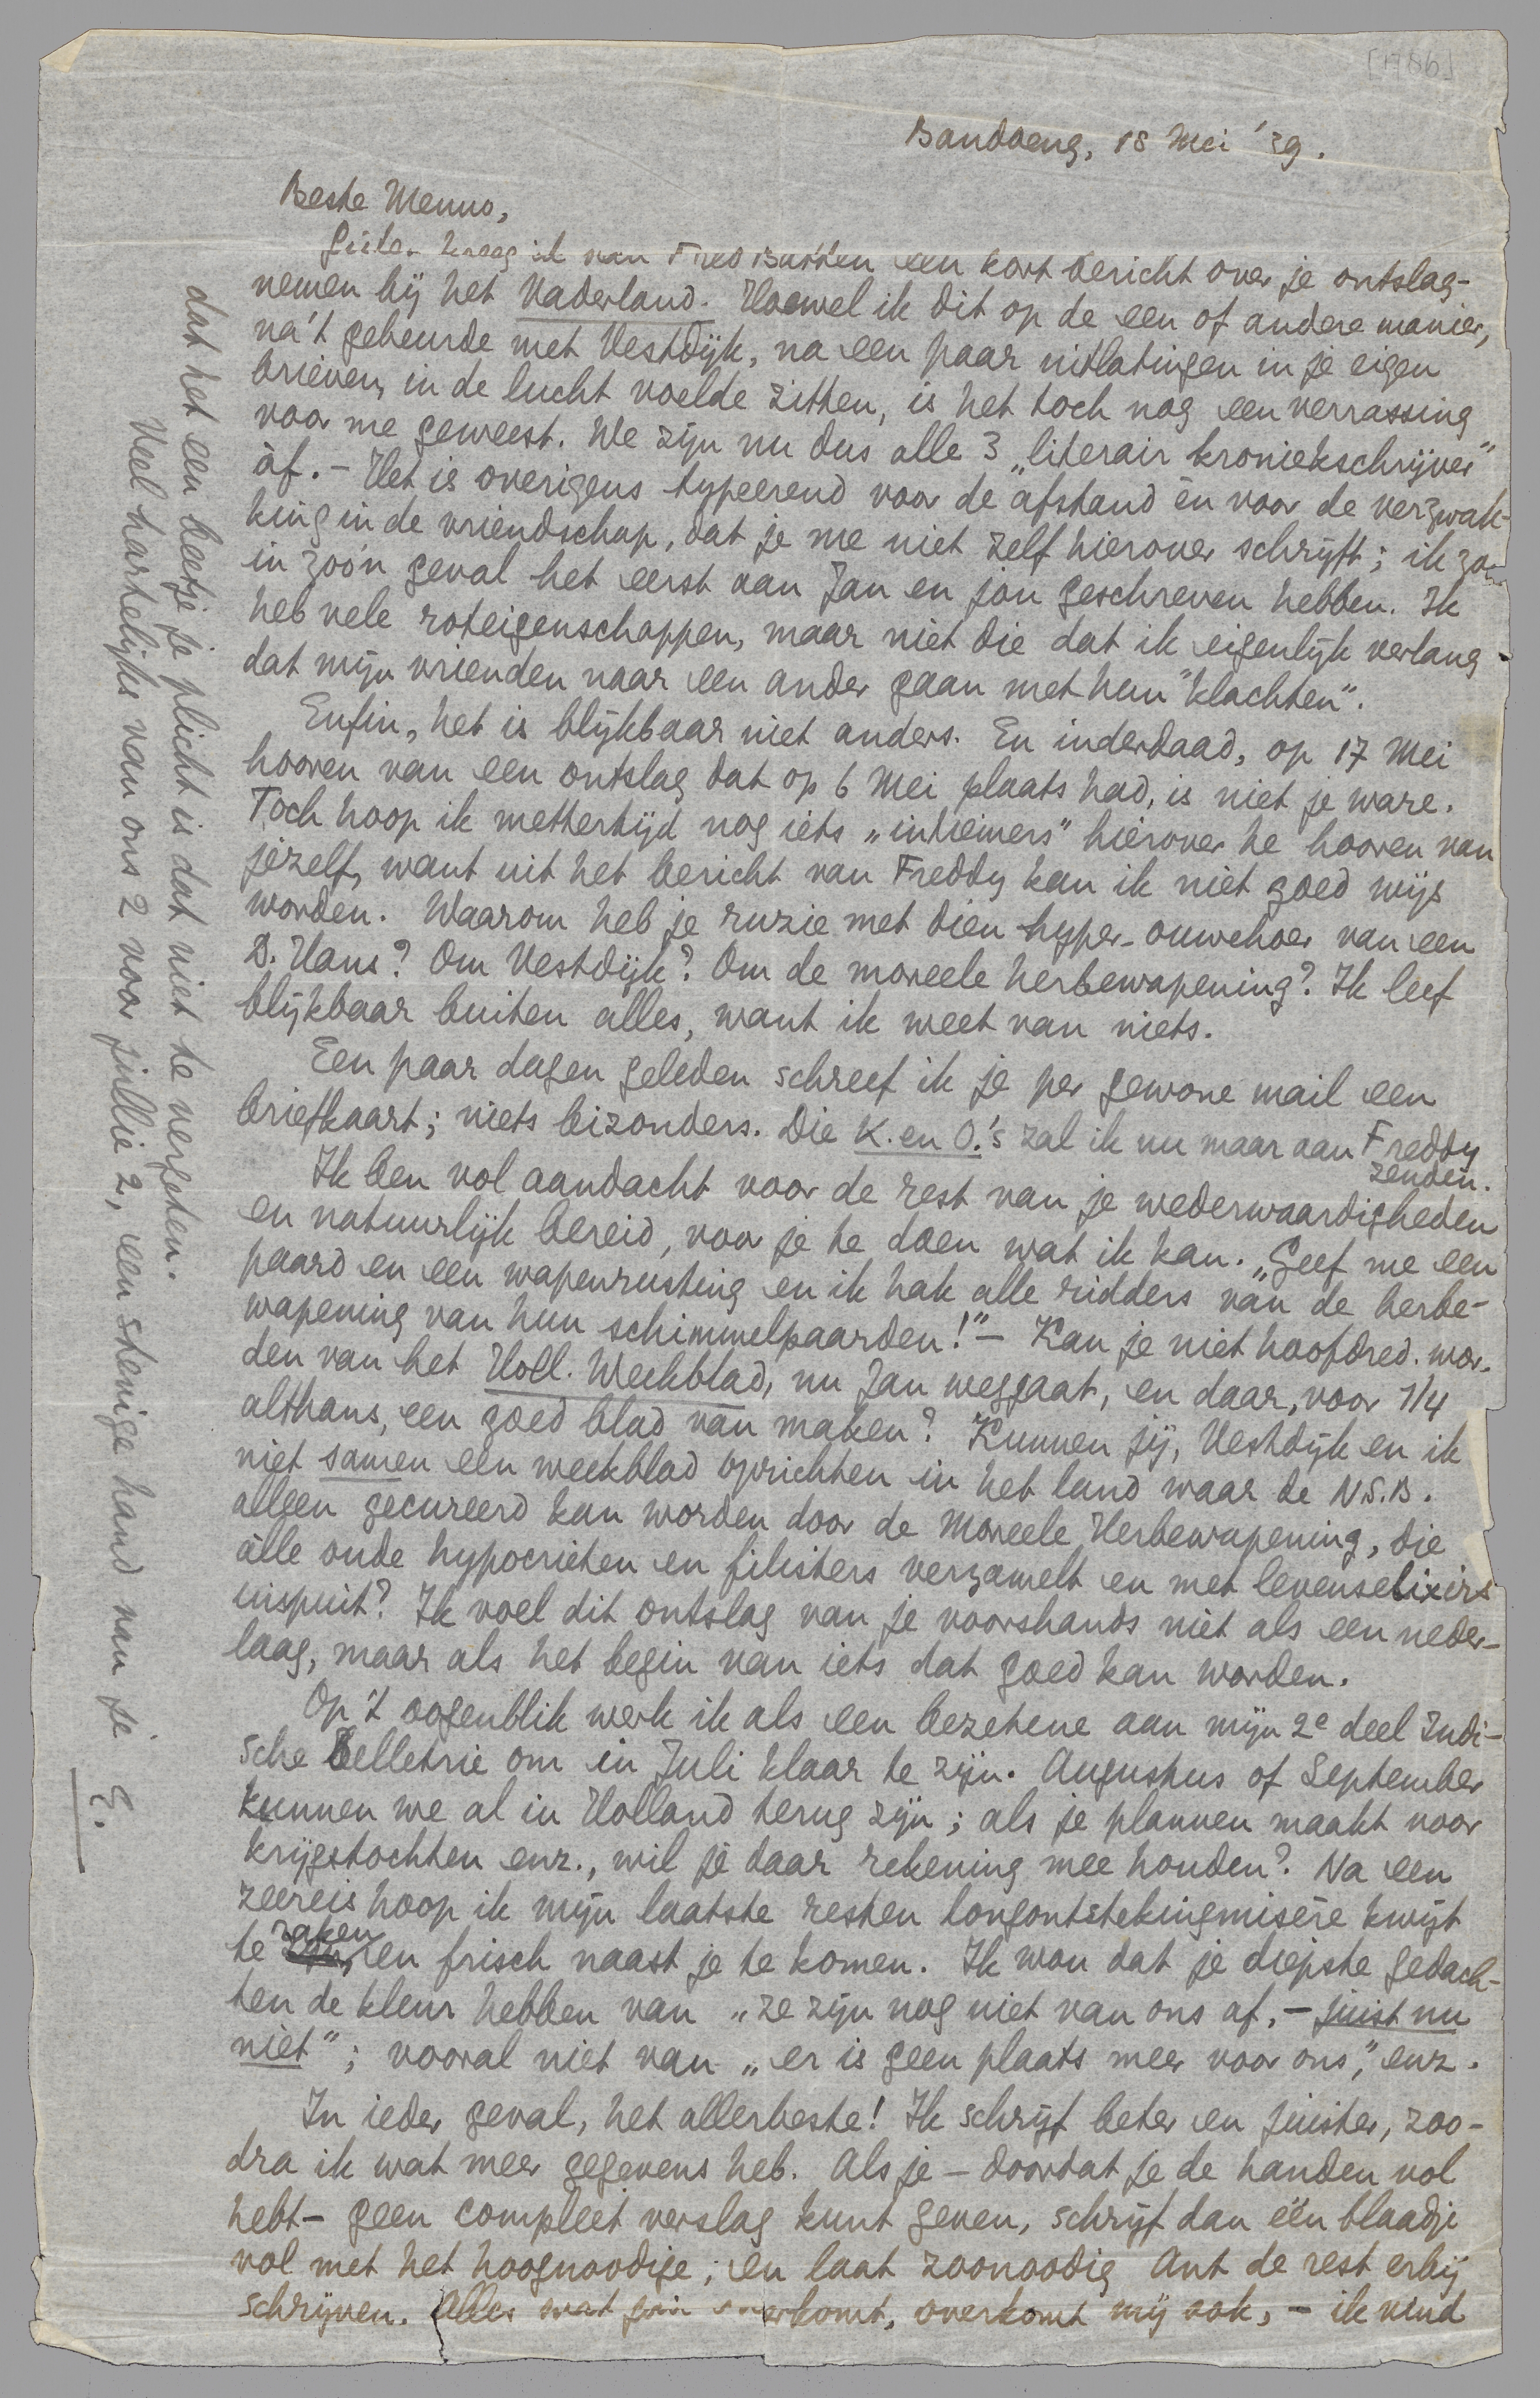 [1786]
Bandoeng, 18 Mei '39.
Beste Menno,
Gister kreeg ik van Fred Batten een kort bericht over je ontslag-
nemen bij het Vaderland. Hoewel ik dit op de een of andere manier,
na 't gebeurde met Vestdijk, na een paar uitlatingen in je eigen
brieven, in de lucht voelde zitten, is het toch nog een verrassing
voor me geweest. We zijn nu dus alle 3 „literair kroniekschrijver"
àf. – Het is overigens typeerend voor de afstand èn voor de verzwak-
king in de vriendschap, dat je me niet zelf hierover schrijft; ik zou
in zoo'n geval het eerst aan Jan en jou geschreven hebben. Ik
heb vele roteigenschappen, maar niet die dat ik eigenlijk verlang
dat mijn vrienden naar een ander gaan met hun "klachten".
Enfin, het is blijkbaar niet anders. En inderdaad, op 17 Mei
hooren van een ontslag dat op 6 Mei plaats had, is niet je ware.
Toch hoop ik mettertijd nog iets „intiemers" hierover te hooren van
jezelf, want uit het bericht van Freddy kan ik niet goed wijs
worden. Waarom heb je ruzie met dien hyper-ouwehoer van een
D. Hans? Om Vestdijk? Om de moreele herbewapening? Ik leef
blijkbaar buiten alles, want ik weet van niets.
Een paar dagen geleden schreef ik je per gewone mail een
briefkaart; niets bizonders. Die K. en O.'s zal ik nu maar aan Freddy
zenden.
Ik ben vol aandacht voor de rest van je wederwaardigheden
en natuurlijk bereid, voor je te doen wat ik kan. „Geef me een
paard en een wapenrusting en ik hak alle ridders van de herbe-
wapening van hun schimmelpaarden!" – Kan je niet hoofdred. wor-
den van het Holl. Weekblad, nu Jan weggaat, en daar, voor 1/4
althans, een goed blad van maken? Kunnen jij, Vestdijk en ik
niet samen een weekblad oprichten in het land waar de N.S.B.
alleen gecureerd kan worden door de Moreele Herbewapening, die
àlle oude hypocrieten en filisters verzamelt en met levenselixirs
inspuit? Ik voel dit ontslag van je voorshands niet als een neder-
laag, maar als het begin van iets dat goed kan worden.
Op 't oogenblik werk ik als een bezetene aan mijn 2e deel Indi-
sche Belletrie om in Juli klaar te zijn. Augustus of September
kunnen we al in Holland terug zijn; als je plannen maakt voor
krijgstochten enz., wil je daar rekening mee houden? Na een
zeereis hoop ik mijn laatste resten longontstekingmisère kwijt
te raken, en frisch naast je te komen. Ik wou dat je diepste gedach-
ten de kleur hebben van „ze zijn nog niet van ons af, – juist nu
niet"; vooral niet van „er is geen plaats meer voor ons", enz.
In ieder geval, het allerbeste! Ik schrijf beter en juister, zoo-
dra ik wat meer gegevens heb. Als je – doordat je de handen vol
hebt – geen compleet verslag kunt geven, schrijf dan één blaadje
vol met het hoognoodige; en laat zoonoodig Ant de rest erbij
schrijven. Alles wat jou overkomt, overkomt mij ook, – ik vind
dat het een beetje je plicht is dat niet te vergeten.
Veel hartelijks van ons 2 voor jullie 2, een stevige hand van je
E.